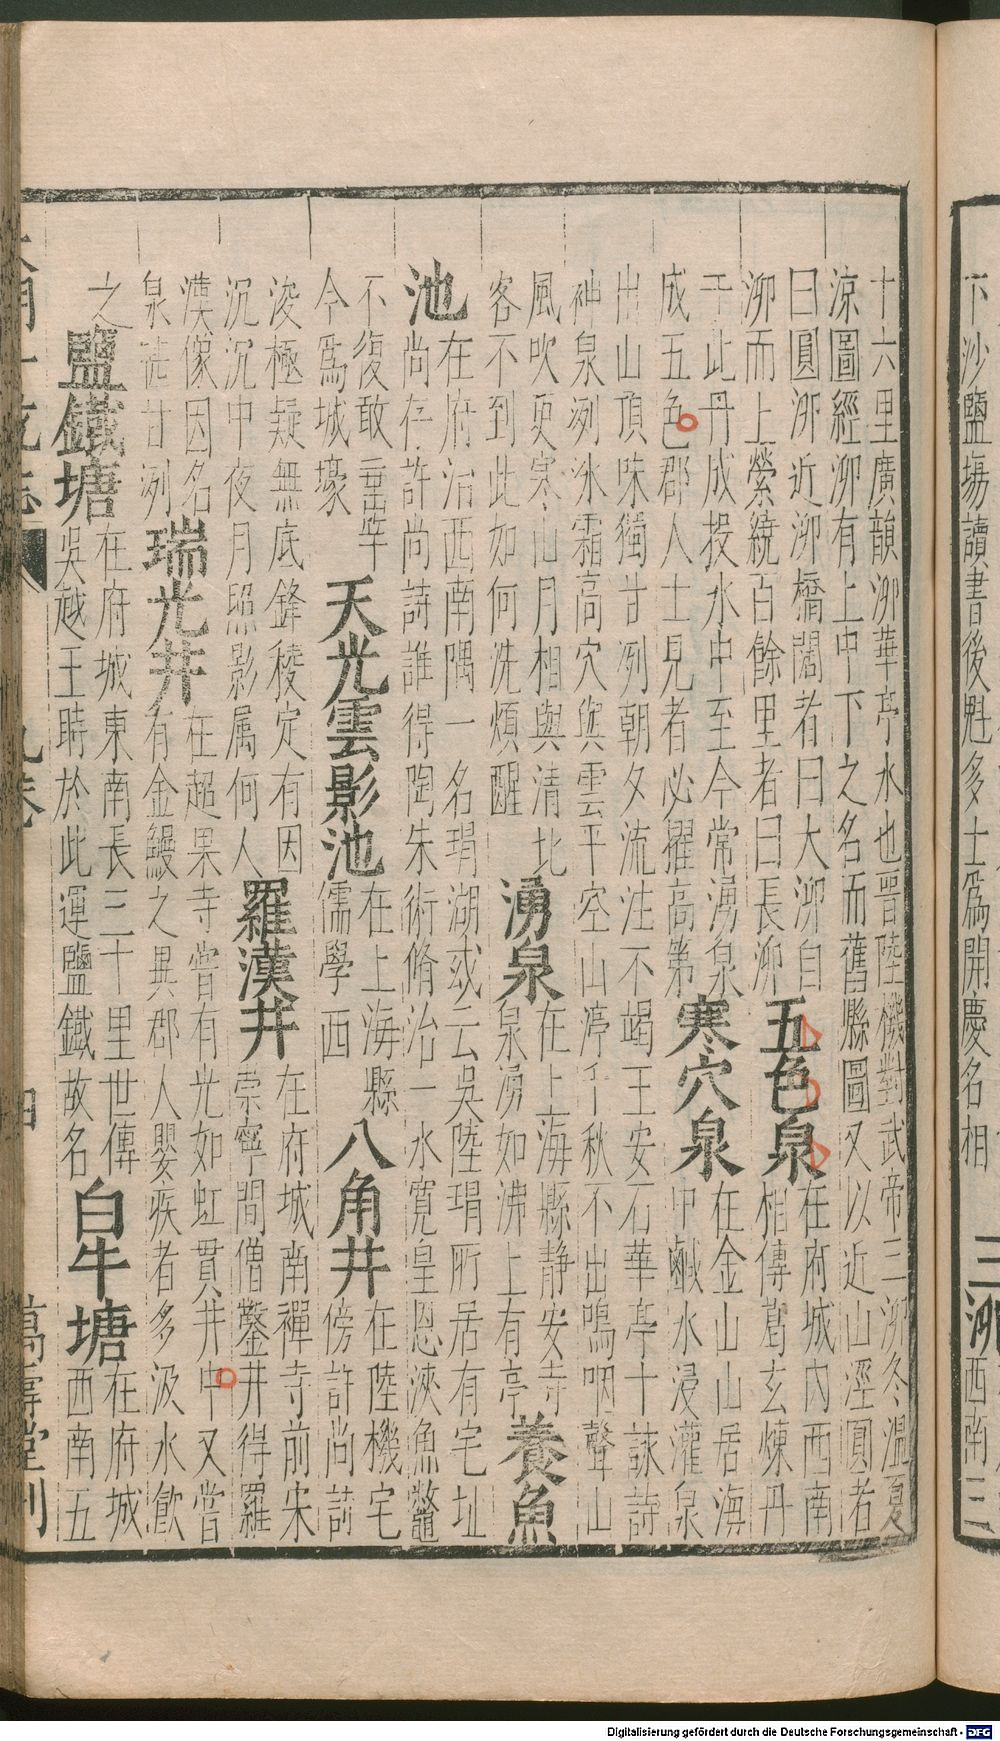 下沙鹽塲讀書後魁多士爲開慶名相
三泖
西南三
十六里廣韻泖華亭水也晉陸機對武帝三泖冬溫夏
凉圖經泖有上中下之名而舊縣圖又以近山涇圓者
曰圓泖近泖橋闊者曰大泖自
泖而上縈繞百餘里者曰長泖
五色泉
在府城内西南
相傳葛玄煉丹
于此丹成投水中至今常湧泉
成五色郡人士見者必擢高第
寒穴泉
在金山山居海
中鹹水浸灌泉
出山頂味獨甘冽朝夕流注不竭王安石華亭十詠詩
神泉冽冰霜高穴與雲平空山渟千秋不出鳴咽聲山
風吹更寒山月相與清北
客不到此如何洗煩酲
湧泉
在上海縣静安寺
泉湧如沸上有亭
養魚
池
在府治西南隅一名瑁湖或云吳陸瑁所居有宅址
尚存許尚詩誰得陶朱術脩治一水寬皇恩浹魚鼈
不復敢垂竿
今爲城壕
天光雲影池
在上海縣
儒學西
八角井
在陸機宅
傍許尚詩
浚極疑無底鋒稜定有因
沉沉中夜月照影屬何人
羅漢井
在府城南禪寺前宋
崇寧間僧鑿井得羅
漢像因名
泉甚甘冽
瑞光井
在超果寺嘗有光如虹貫井中又嘗
有金鰻之異郡人嬰疾者多汲水飲
之
鹽鐵塘
在府城東南長三十里世傳
吳越王時於此運鹽鐵故名
白牛塘
在府城
西南五
大明一統志 九卷 四 萬壽堂刊
Digitalisierung gefördert durch die Deutsche Forschungsgemeinschaft - DFG